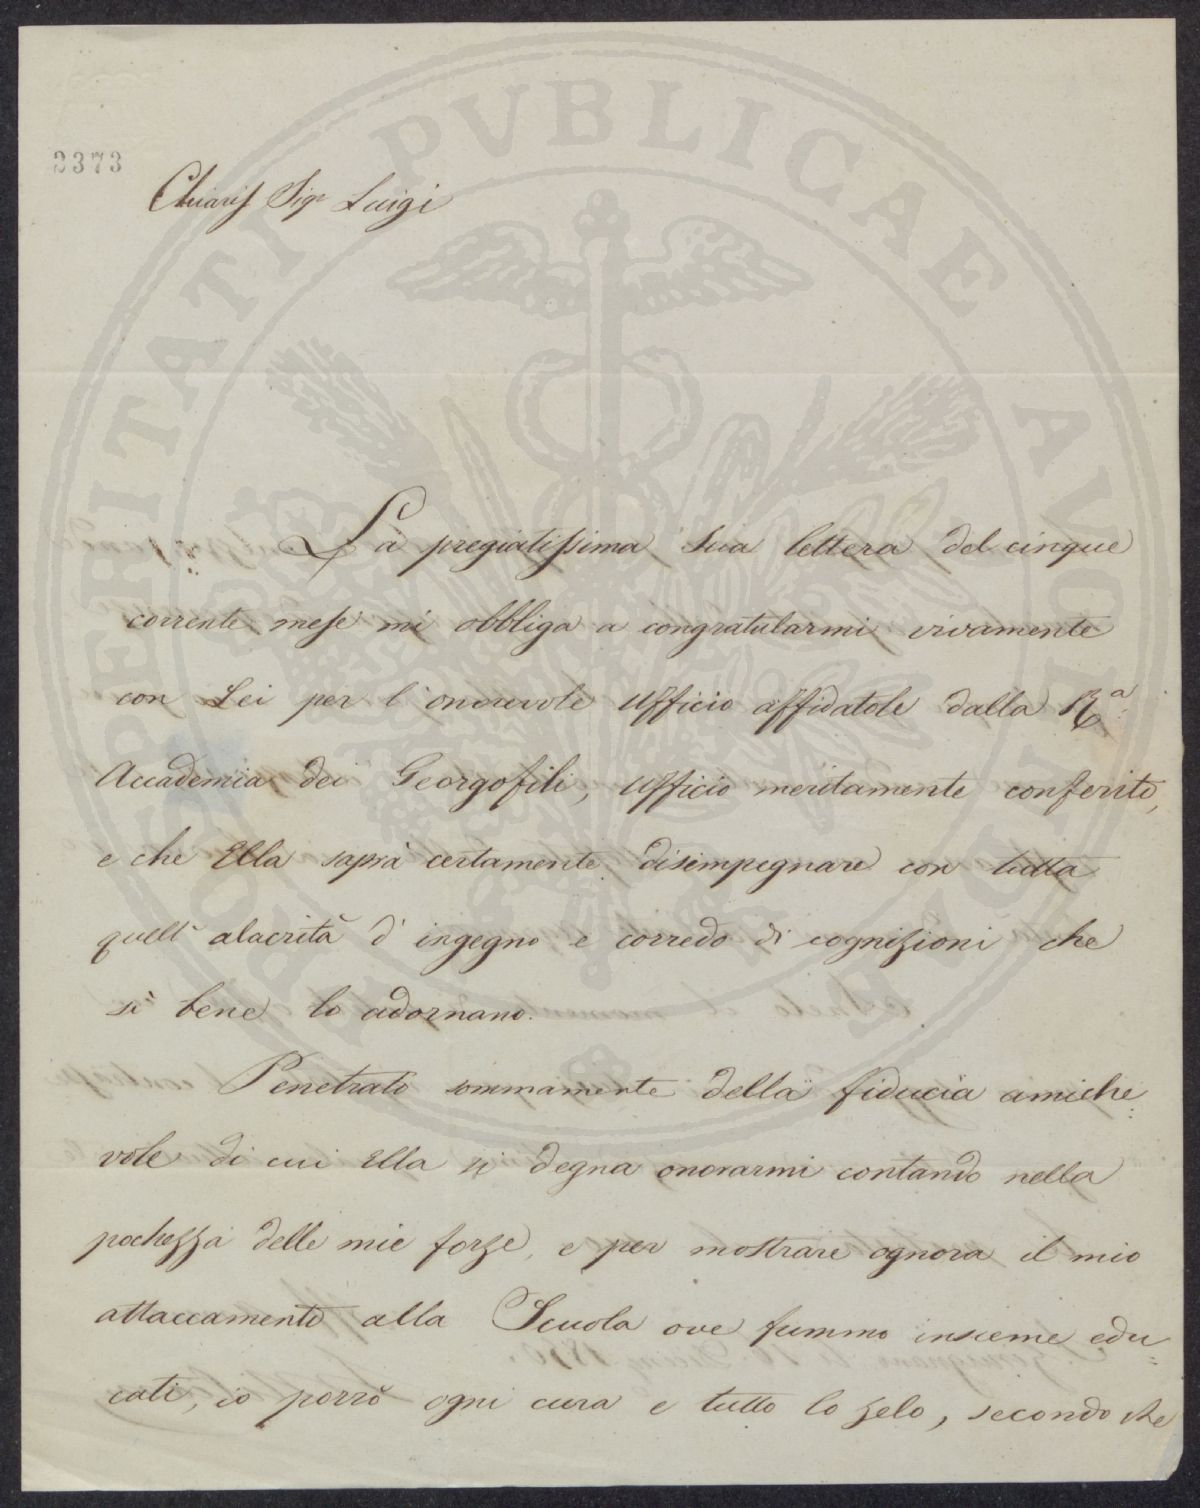 2373
Chiaris Sigr Luigi
La pregiatissima sua lettera del cinque
corrente mese mi obbliga a congratularmi vivamente
con Lei per l'onorevole ufficio affidatole dalla Ra
Accademia dei Georgofili, ufficio meritamente conferito,
e che Ella saprà certamente disimpegnare con tutta
quell'alacrità d'ingegno e corredo di cognizioni che
sì bene lo adornano.
Penetrato sommamente della fiducia amiche:
vole di cui Ella si degna onorarmi contando nella
pochezza delle mie forze, e per mostrare ognora il mio
attaccamento alla Scuola ove fummo insieme edu:
cati, io porrò ogni cura e tutto lo zelo, secondo che
PROSPERITATI PVBLICAE AVGENDAE